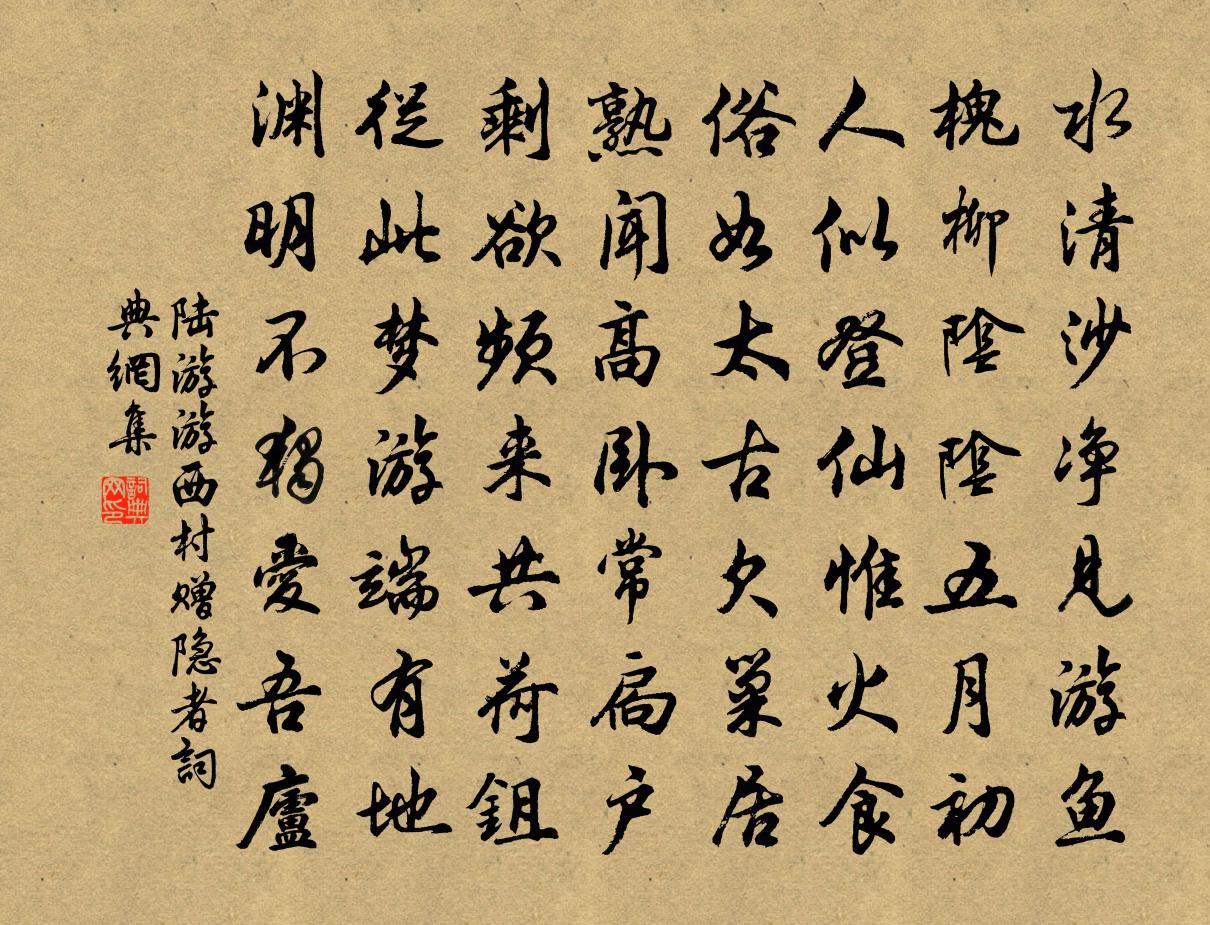 水清沙净见游鱼
槐柳陰陰五月初
人似登仙惟火食
俗如太古欠巢居
熟闻高卧常扃户
剩欲频来共荷鉏
從此梦游端有地
渊明不独爱吾廬
陆游游西村赠隐者詞
典網集
詞典
网印